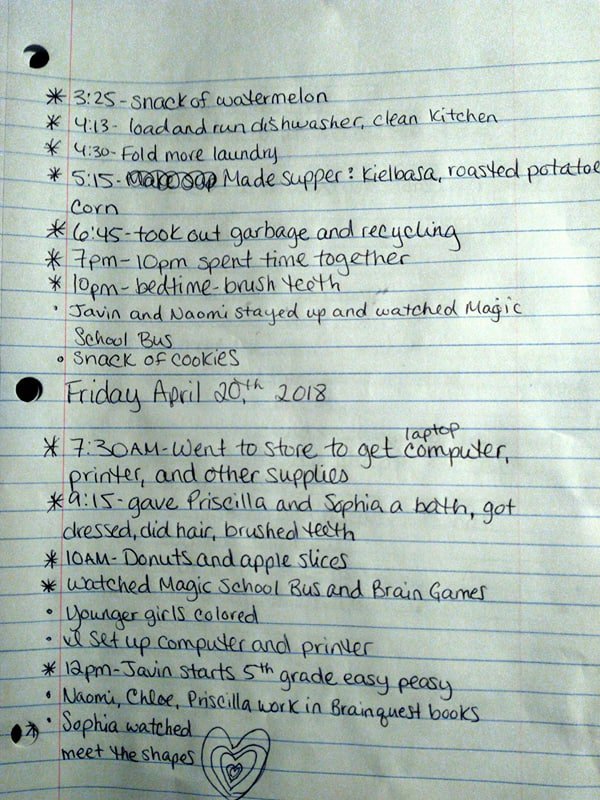 * 3:25- snack of watermelon
* 4:13- load and run dishwasher, clean kitchen
* 4:30- Fold more laundry
* 5:15- Made supper: Kielbasa, roasted potatoe
Corn
* 6:45- took out garbage and recycling
* 7pm-10pm spent time together
* 10pm- bedtime- brush teeth
• Javin and Naomi stayed up and watched Magic
School Bus
• snack of cookies
Friday April 20,th 2018
laptop
* 7:30AM- Went to store to get computer,
printer, and other supplies
* 9:15- gave Priscilla and Sophia a bath, got
dressed, did hair, brushed teeth
* 10AM- Donuts and apple slices
* watched Magic School Bus and Brain Games
• Younger girls colored
• I set up computer and printer
* 12pm- Javin starts 5th grade easy peasy
• Naomi, Chloe, Priscilla work in Brainquest books
• Sophia watched
meet the shapes